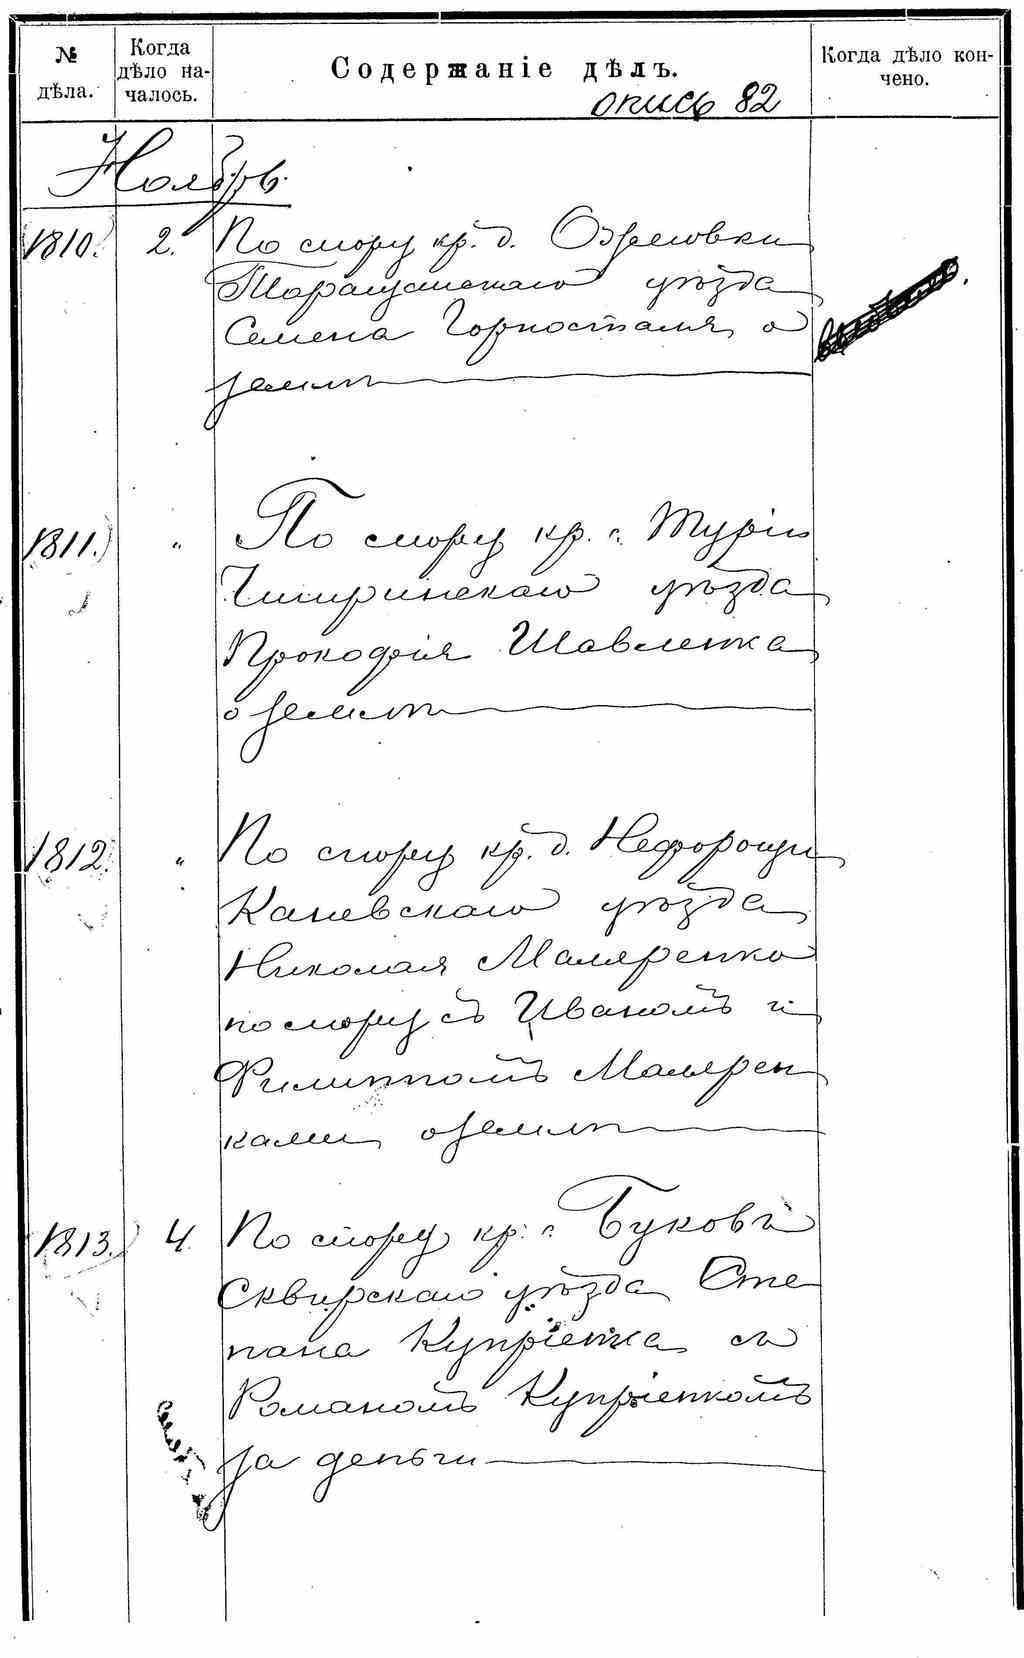 № дѣла.
Когда дѣло на-
чалось.
Содержаніе дѣлъ.
Когда дѣло кон-
чено.
опись 82
Ноябрь.
1810. 2. По спору кр. д. Ожеговки
Таращанскаго уѣзда
Семена Горностая о
землѣ
1811. „ По спору кр. с. Туріи
Чигиринскаго уѣзда
Прокофія Шавленка
о землѣ
1812. „ По спору кр. д. Нефорощи
Каневскаго уѣзда
Николая Маляренко
по спору съ Иваномъ и
Филиппомъ Малярен
ками о землѣ
1813. 4. По спору кр. с. Буковъ
Сквирскаго уѣзда Сте
пана Купріенка съ
Романомъ Купріенкомъ
за деньги